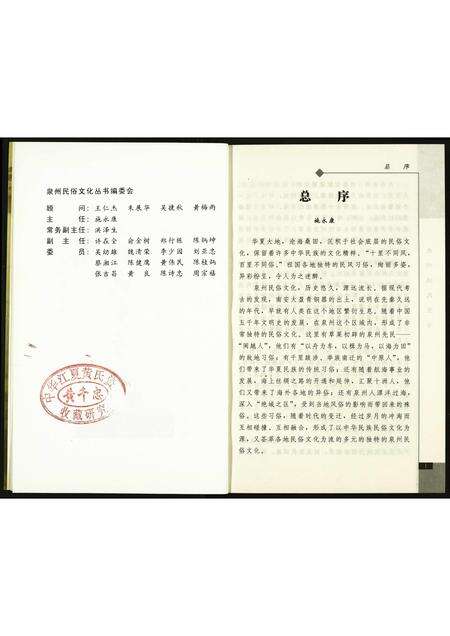 泉州民俗文化丛书编委会
顾 问：王仁杰 朱展华 吴捷秋 黄梅雨
主 任：施永康
常务副主任：洪泽生
副 主 任：许在全 俞金树 郑行栋 陈炳坤
委 员：吴幼雄 魏清荣 李少园 刘亚忠
蔡湘江 陈健鹰 黄伟民 陈桂炳
张吉昌 黄 良 陈诗忠 周宗禧
中华江夏黄氏
收藏研究
总 序
总 序
施永康
华夏大地，沧海桑田，沉积于社会底层的民俗文
化，保留着许多中华民族的文化精粹。“十里不同风，
百里不同俗。”祖国各地独特的民风习俗，绚丽多姿，
异彩纷呈，令人为之迷醉。
泉州民俗文化，历史悠久，源远流长。据现代考
古的发现，南安大盈青铜器的出土，说明在先秦久远
的年代，早就有人类在这个地区繁衍生息。随着中国
五千年文明史的发展，在泉州这个区域内，形成了非
常独特的民俗文化。这里有草莱初辟的泉州先民——
“闽越人”，他们有“以舟为车，以楫为马，以海为田”
的故地习俗；有千里跋涉、举族南迁的“中原人”，他
们带来了华夏民族的传统习俗；还有随着航海事业的
发展，海上丝绸之路的开通和延伸，汇聚十洲人，他
们又带来了海外各地的异俗；还有泉州人漂洋过海，
深入“绝域之区”，受到当地风俗的影响而带回来的殊
俗。这些习俗，随着时代的变迁，经过岁月的冲刷而
互相碰撞、互相融合，形成了以中华民族民俗文化为
源，又荟萃各地民俗文化为流的多元的独特的泉州民
俗文化。
1